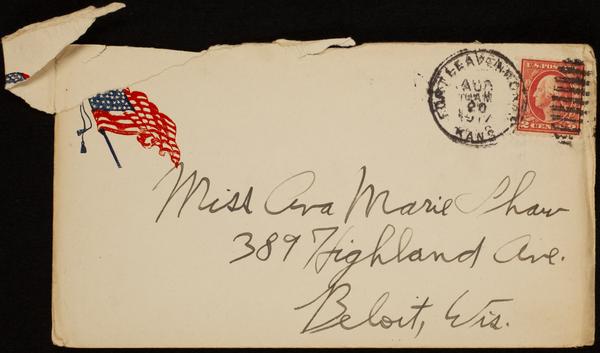 FORT LEAVENWORTH
AUG
20
1917
KANS.
U.S. POSTAGE
2 CENTS 2
Miss Ava Marie Shaw
389 Highland Ave.
Beloit, Wis.